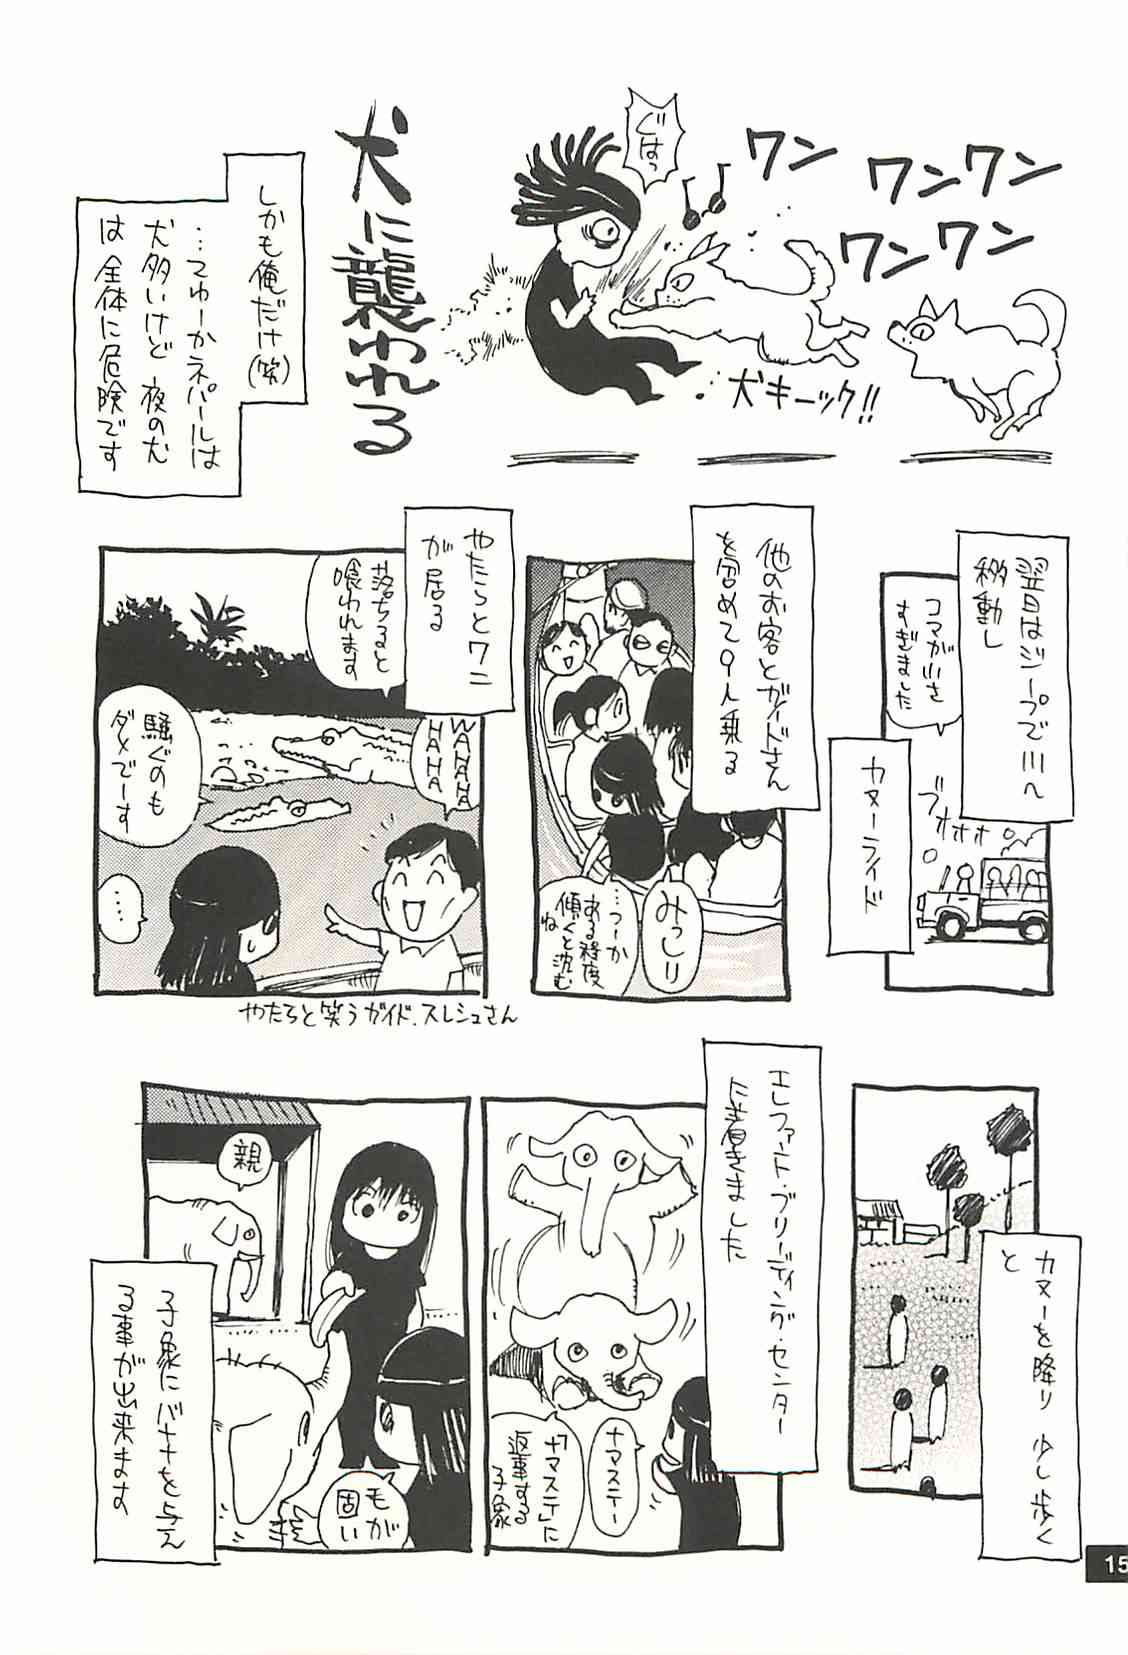 ワン
ワンワン
ワンワン
ぐはっ
犬キーック!!
犬に襲われる
しかも俺だけ(笑)
…てゆーかネパールは
犬多いけど 夜の犬
は全体に危険です
翌日はジープで川へ
移動し
コマが小さ
すぎました
ブオオオ
カヌーライド
他のお客とガイドさん
を含めて9人乗る
みっしり
…つーか
ある程度
傾くと沈む
ね
やたらとワニ
が居る
落ちると
喰われます
WAHAHA
HAHA
騒ぐのも
ダメでーす
…
やたらと笑うガイド、スレシュさん
カヌーを降り 少し歩く
と
エレファント・ブリーディング・センター
に着きました
ナマステー
「ナマステ」に
返事する
子象
親
毛が
固い
子象にバナナを与え
る事が出来ます
15